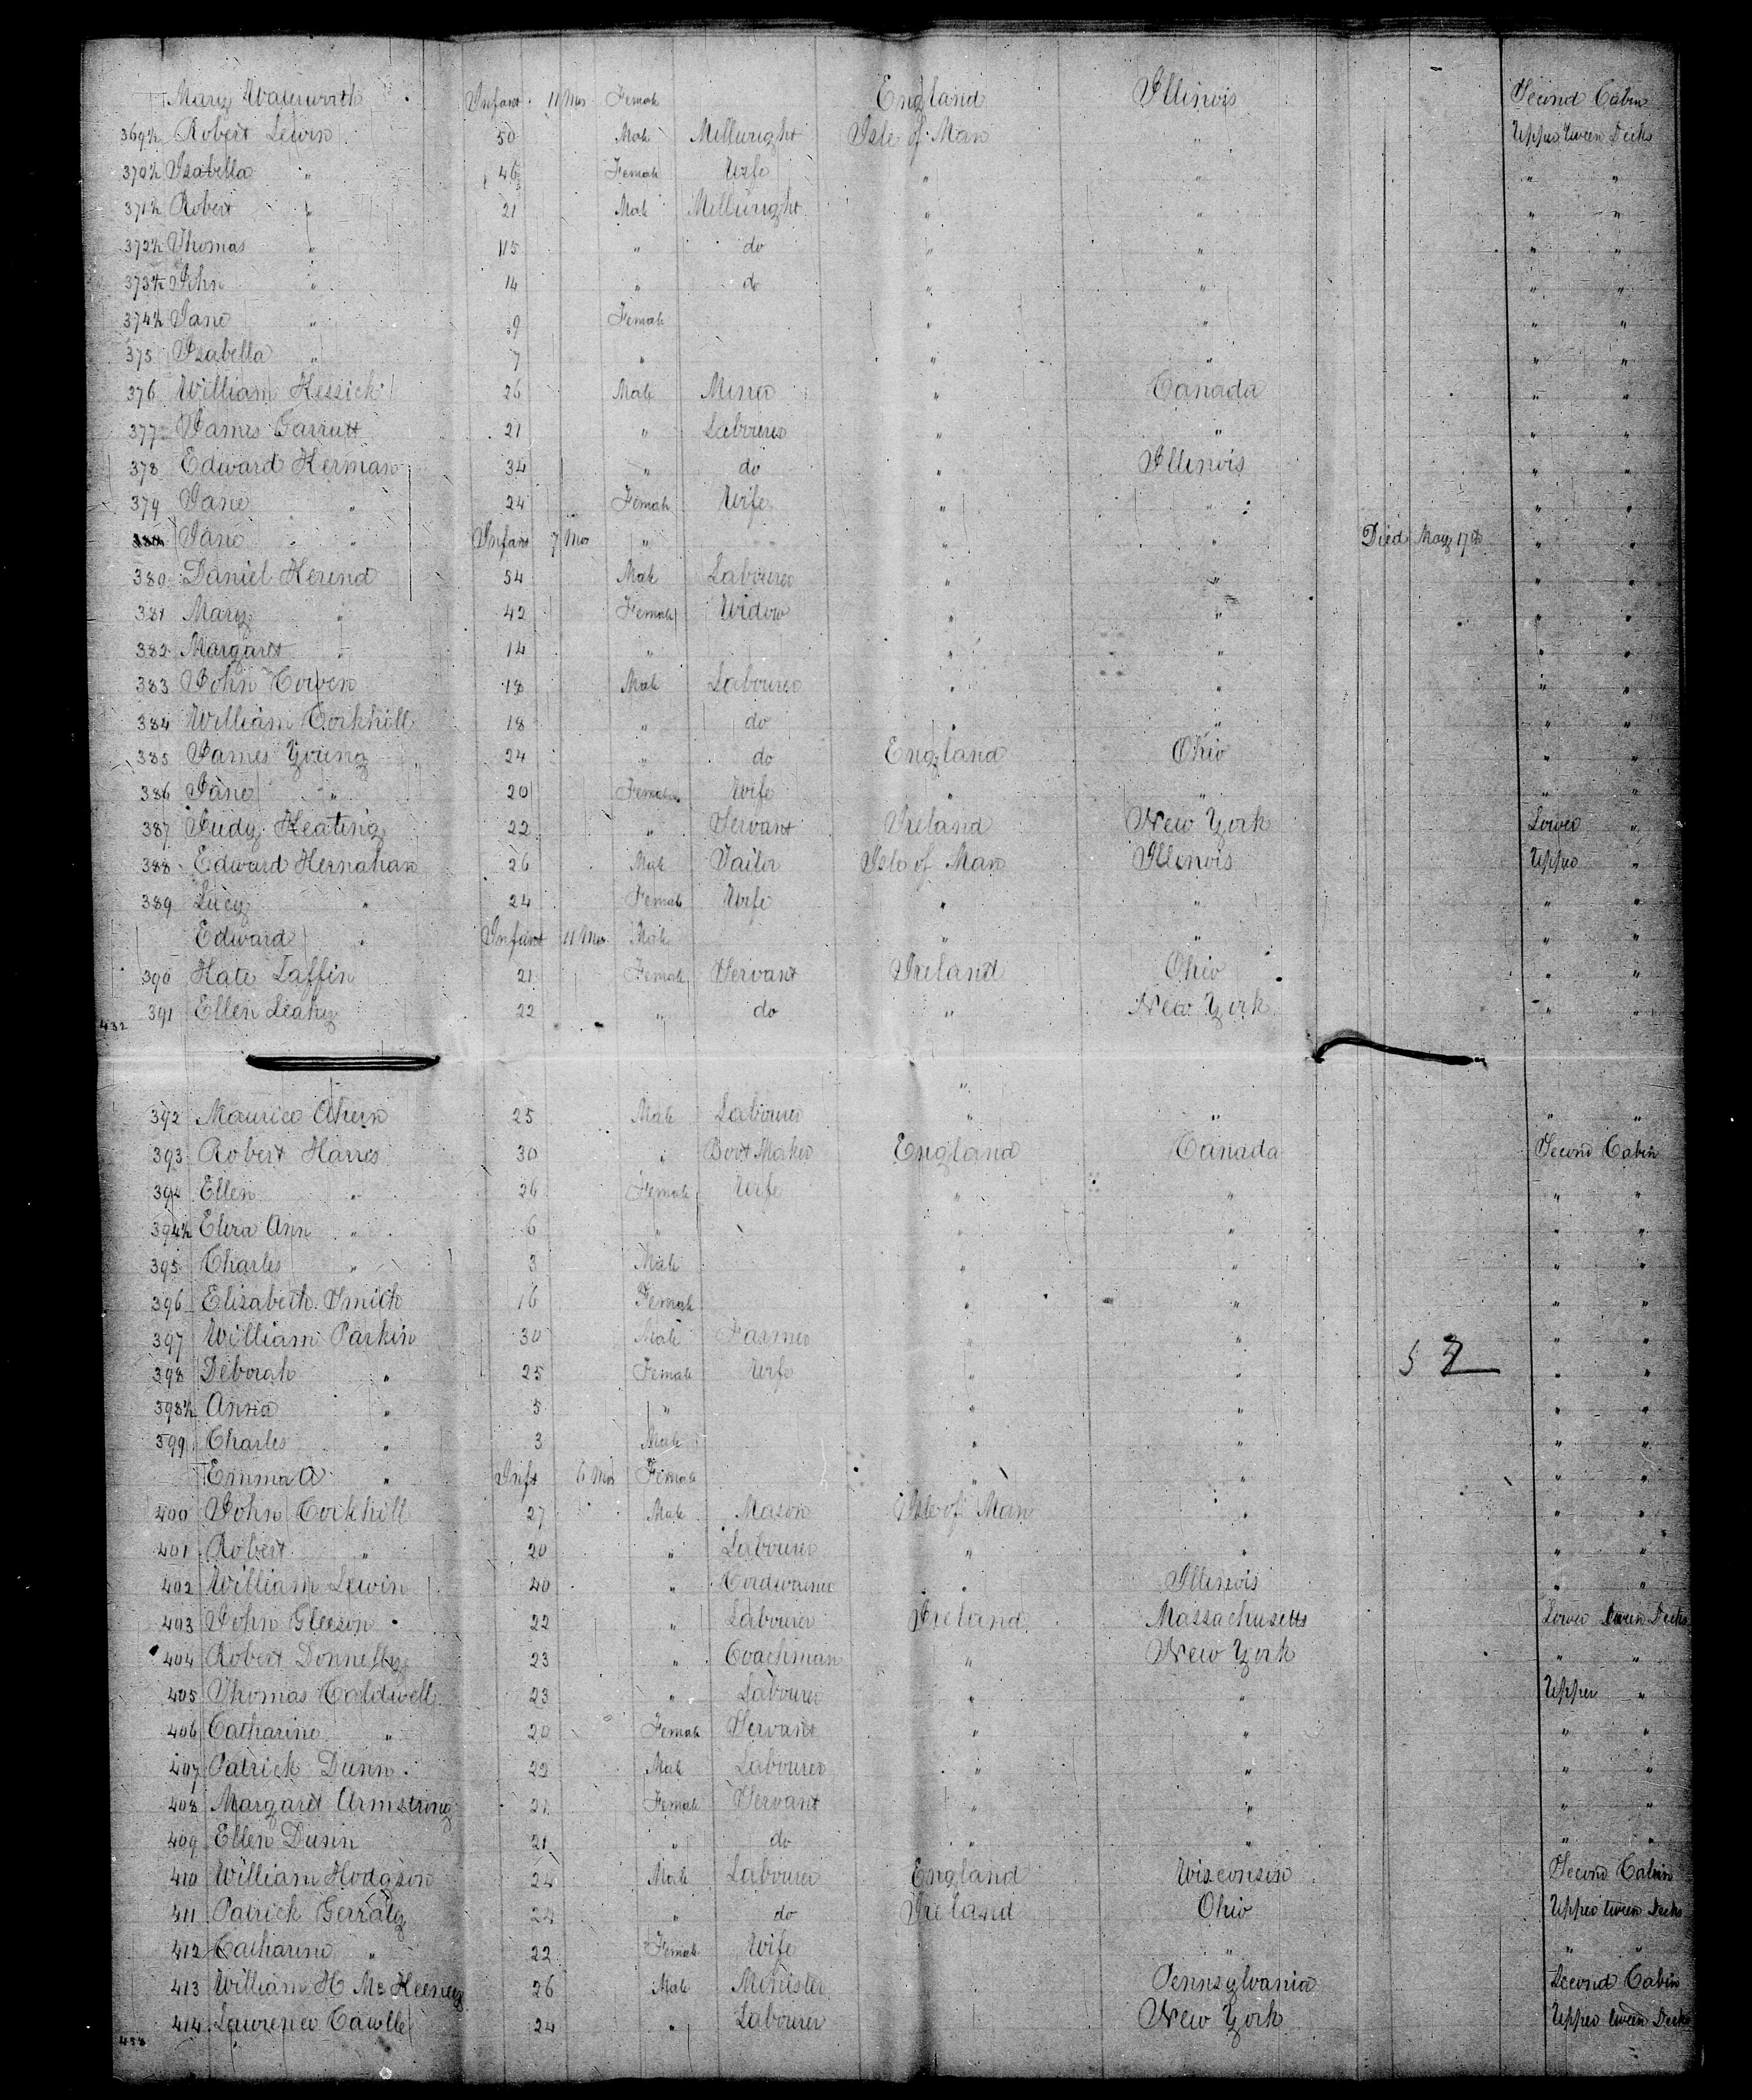 Mary Waterworth Infant 11 Mos Female England Illinois Second Cabin
369½ Robert Lewin 50 Male Millwright Isle of Man " Upper tween Decks
370½ Isabella " 46 Female Wife " " " "
371½ Robert " 21 Male Millwright " " " "
372½ Thomas " 15 " do " " " "
373½ John " 14 " do " " " "
374½ Jane " 9 Female " " " "
375 Isabella " 7 " " " " "
376 William Kessick 26 Male Miner " Canada " "
377 James Garrutt 21 " Labourer " " " "
378 Edward Kerman 34 " do " Illinois " "
379 Jane " 24 Female Wife " " " "
Jane " Infant 7 Mos " " " Died May 17th " "
380 Daniel Kerend 54 Male Labourer " " " "
381 Mary " 42 Female Widow " " " "
382 Margaret " 14 " " " " "
383 John Cowen 18 Male Labourer " " " "
384 William Corkhill 18 " do " " " "
385 James Young 24 " do England Ohio " "
386 Jane " 20 Female Wife " " " "
387 Judy Keating 22 " Servant Ireland New York Lower "
388 Edward Kernahan 26 Male Tailor Isle of Man Illinois Upper "
389 Lucy " 24 Female Wife " " " "
Edward " Infant 11 Mos Male " " " "
390 Kate Laffin 21 Female Servant Ireland Ohio " "
391 Ellen Leahy 22 " do " New York " "
432
"
392 Maurice Ahern 25 Male Labourer " " " "
393 Robert Harres 30 " Boot Maker England Canada Second Cabin
394 Ellen " 26 Female Wife " " " "
394½ Eliza Ann " 6 " " " " "
395 Charles " 3 Male " " " "
396 Elisabeth Smith 16 Female " " " "
397 William Parkin 30 Male Farmer " " " "
398 Deborah " 25 Female Wife " " " "
398½ Anna " 5 " " " " "
399 Charles " 3 Male " " " "
Emma A " Inft 6 Mos Female " " " "
400 John Corkhill 27 Male Mason Isle of Man " " "
401 Robert " 20 " Labourer " " " "
402 William Lewin 40 " Cordwainer " Illinois " "
403 John Gleeson 22 " Labourer Ireland Massachusetts Lower tween Decks
404 Robert Donnelly 23 " Coachman " New York " "
405 Thomas Caldwell 23 " Labourer " " Upper "
406 Catharine " 20 Female Servant " " " "
407 Patrick Dunn 22 Male Labourer " " " "
408 Margaret Armstrong 21 Female Servant " " " "
409 Ellen Dunn 21 " do " " " "
410 William Hodgson 24 Male Labourer England Wisconsin Second Cabin
411 Patrick Gerraty 24 " do Ireland Ohio Upper tween Decks
412 Catharine " 22 Female Wife " " "
413 William H McKeeney 26 Male Minister Pennsylvania Second Cabin
414 Lawrence Cawlle 24 " Labourer New York Upper tween Decks
458